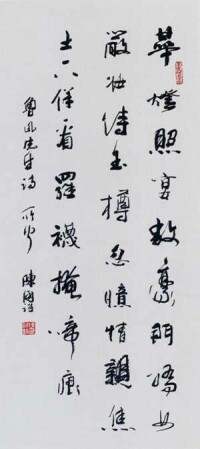 華燈照宴敞豪門嬌女
嚴妝侍玉樽忽憶情親焦
土下佯看羅襪掩啼痕
魯迅先生詩
陳國詩